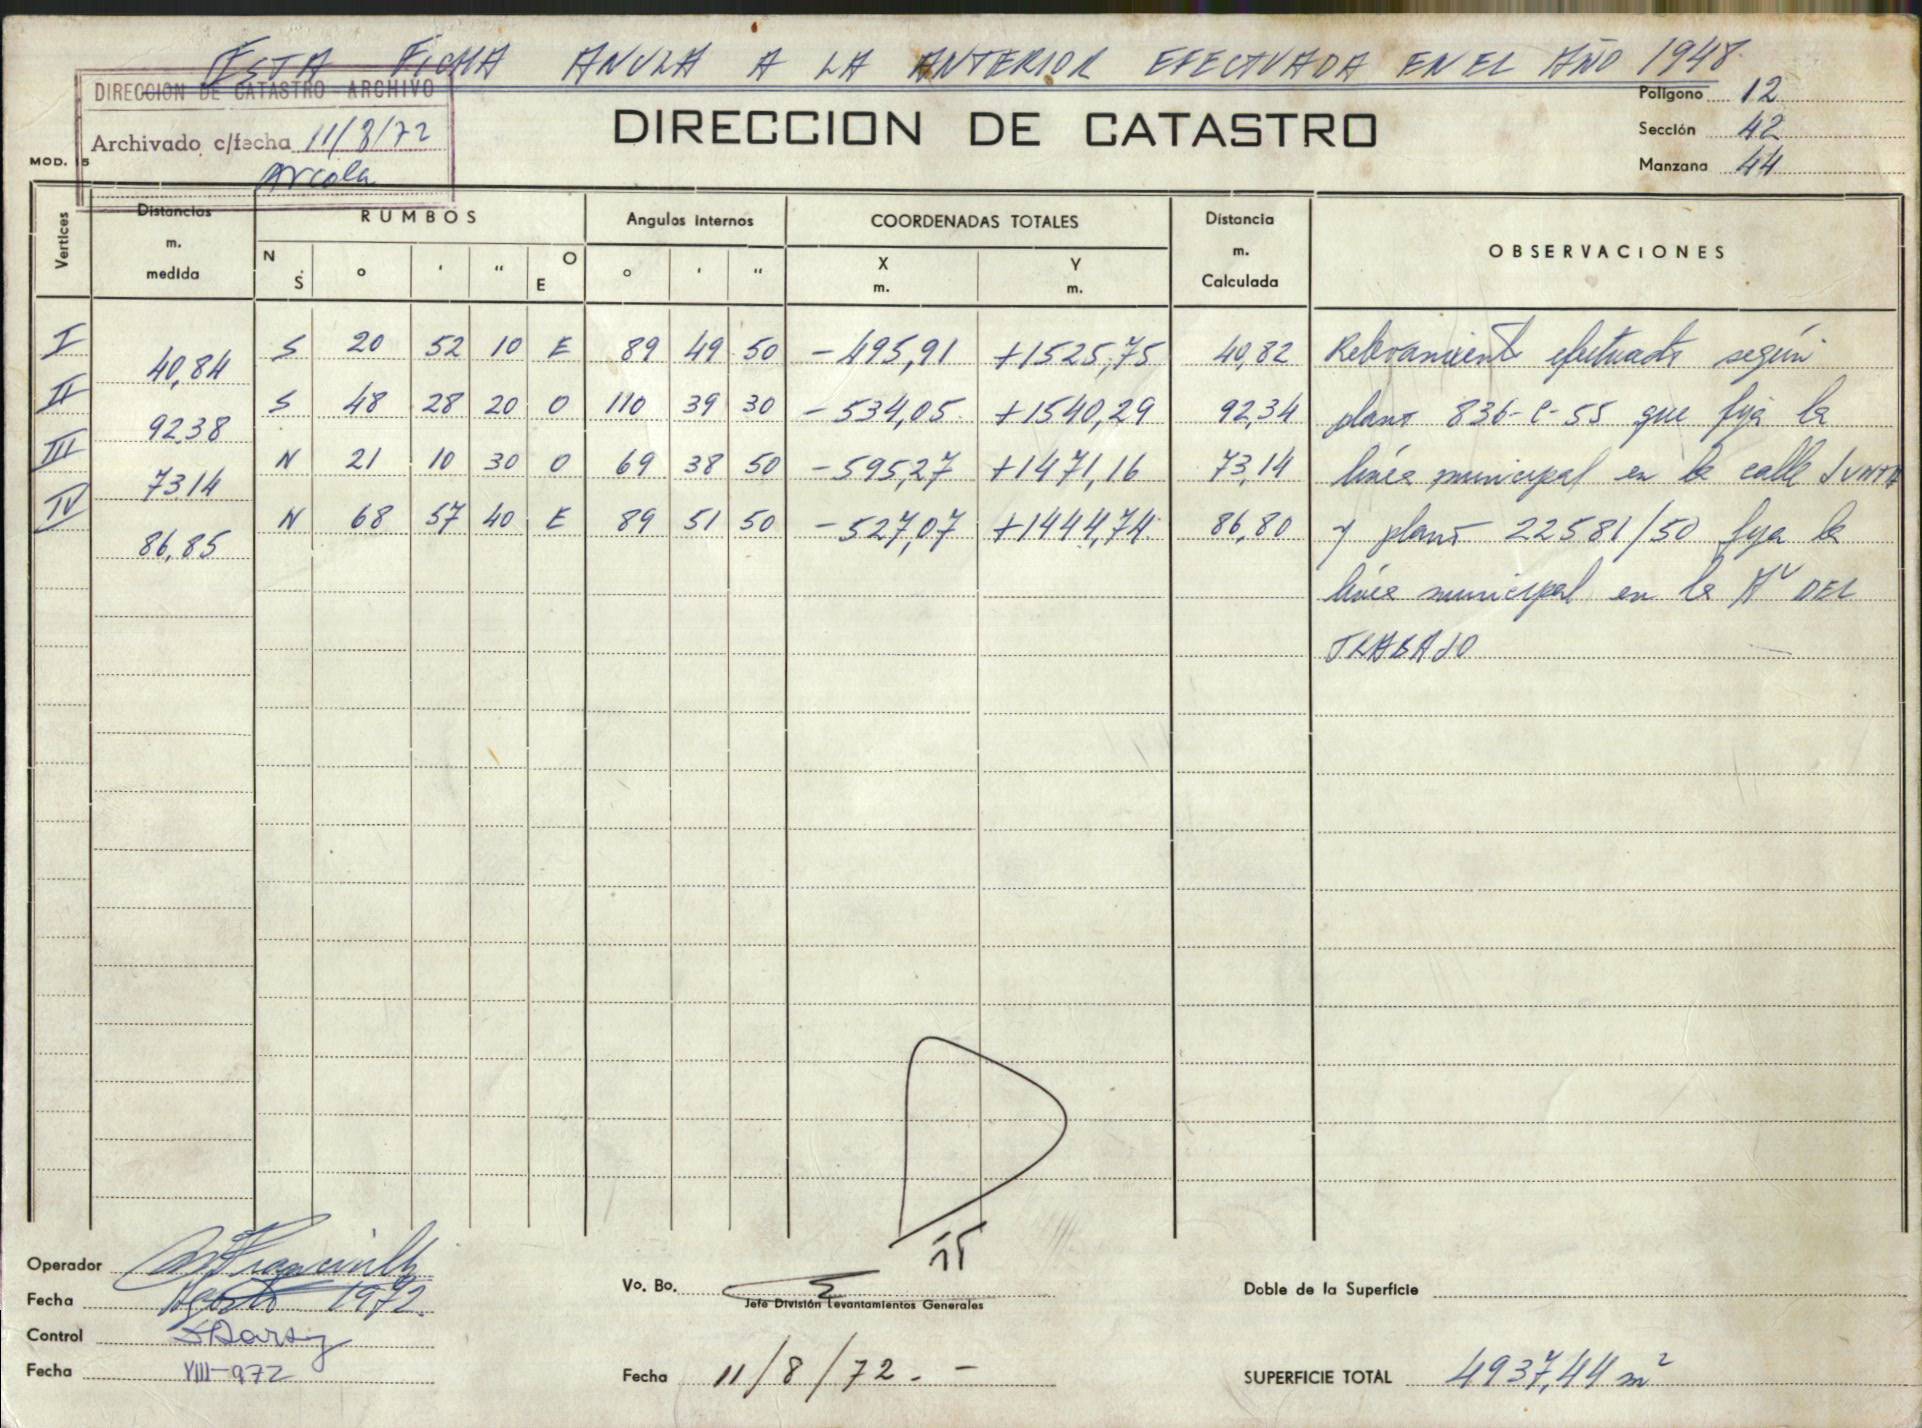 ESTA FICHA ANULA A LA ANTERIOR EFECTUADA EN EL AÑO 1948.
DIRECCION DE CATASTRO - ARCHIVO
Archivado c/fecha 11/8/72
Arcola
MOD. 15
DIRECCION DE CATASTRO
Polígono 12
Sección 42
Manzana 44
Vertices Distancias m. medida RUMBOS Angulos Internos COORDENADAS TOTALES Distancia m. Calculada OBSERVACIONES
N S ° ' " O E ° ' " X m. Y m.
I 40,84 S 20 52 10 E 89 49 50 -495,91 +1525,75 40,82 Relevamiento efectuado según
II 92,38 S 48 28 20 O 110 39 30 -534,05 +1540,29 92,34 plano 836-C-55 que fija la
III 73,14 N 21 10 30 O 69 38 50 -595,27 +1471,16 73,14 línea municipal en la calle JUNTA
IV 86,85 N 68 57 40 E 89 51 50 -527,07 +1444,74 86,80 y plano 22581/50 fija la
línea municipal en la Av DEL
TRABAJO
Operador
Fecha Agosto 1972.
Control
Fecha VIII-972
Vo. Bo.
Jefe División Levantamientos Generales
Fecha 11/8/72.-
Doble de la Superficie
SUPERFICIE TOTAL 4937,44 m²